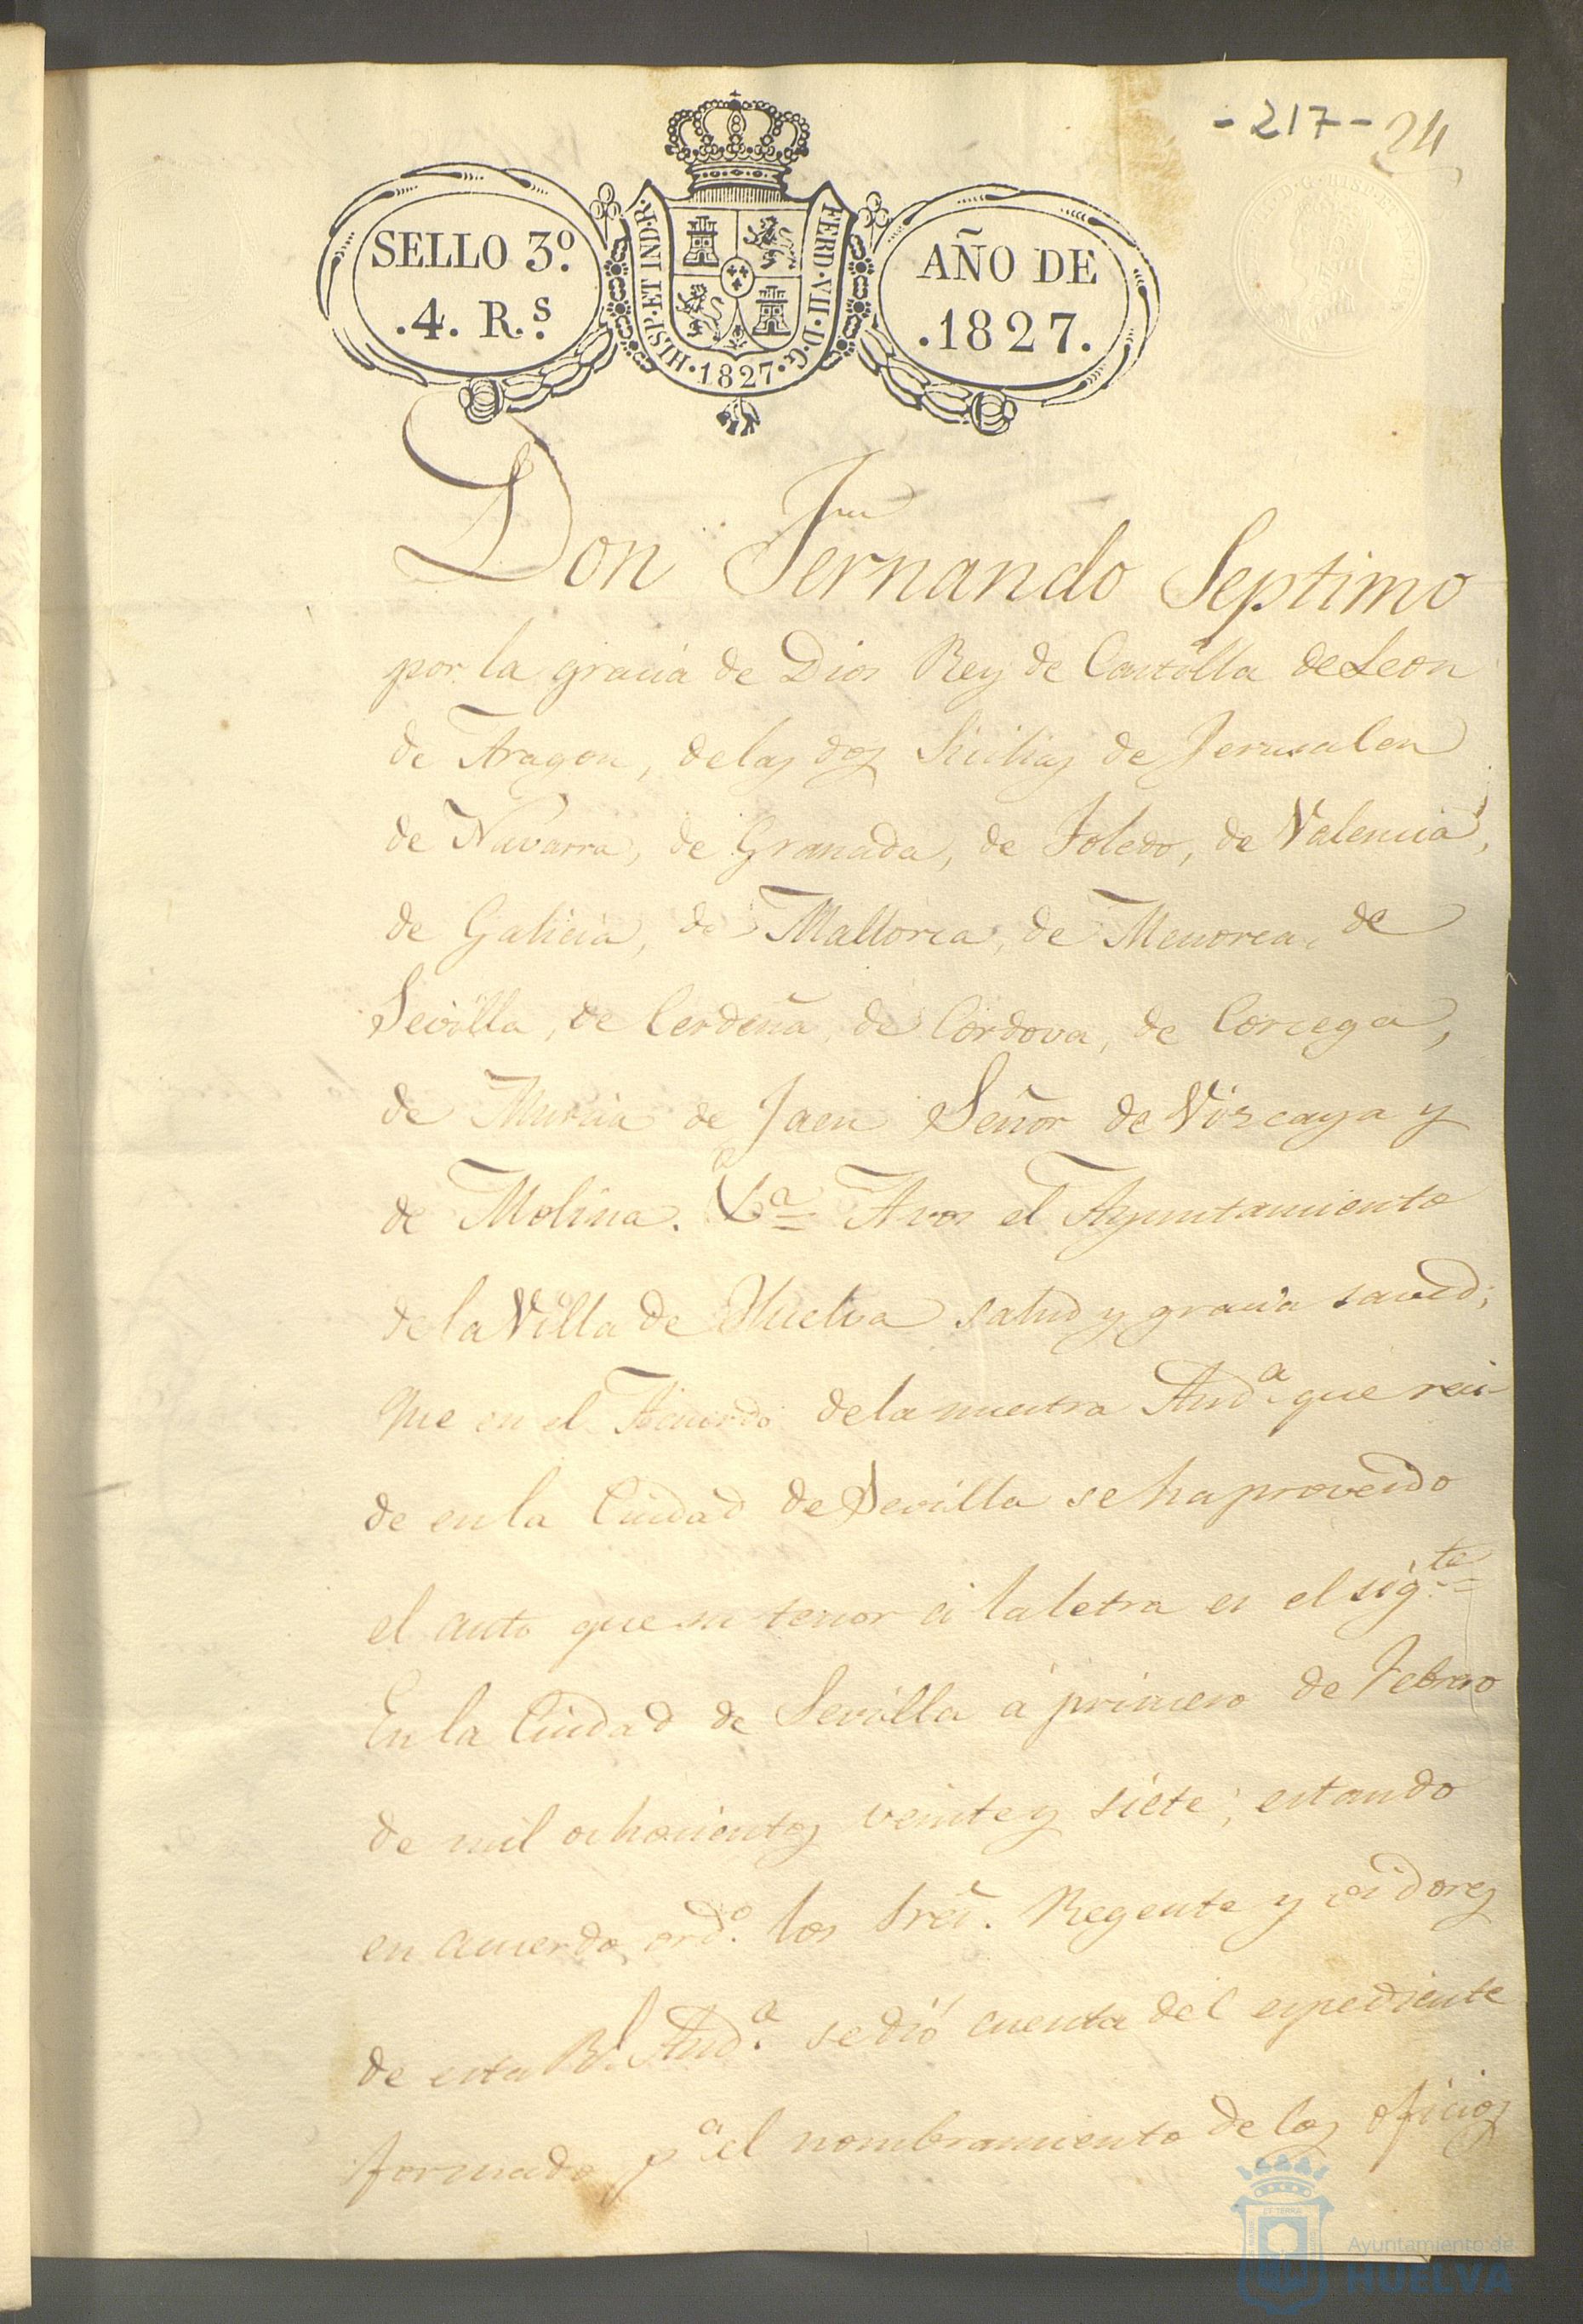 -217- 24
SELLO 3º.
.4. R.s
HISP. ET IND. R.
FERD. VII. D. G.
.1827.
AÑO DE
.1827.
Don Fernando Septimo
por la gracia de Dios Rey de Castilla de Leon
de Aragon, de las dos Sicilias de Jerusalen
de Navarra, de Granada, de Toledo, de Valencia,
de Galicia, de Mallorca, de Menorca, de
Sevilla, de Cerdeña, de Cordova, de Corcega,
de Murcia de Jaen Señor de Viscaya y
de Molina. &.a A vos el Ayuntamiento
de la Villa de Huelva salud y gracia saved;
Que en el Acuerdo de la nuestra Aud.a que reci-
de en la Ciudad de Sevilla se ha proveido
el auto que su tenor á la letra es el sig.te
En la Ciudad de Sevilla á primero de Febrero
de mil ochocientos veinte y siete; estando
en acuerdo ord.o los Sres. Regente y oidores
de esta Rl. Aud.a se dió cuenta del espediente
formado p.a el nombramiento de los oficios
Ayuntamiento de
HUELVA